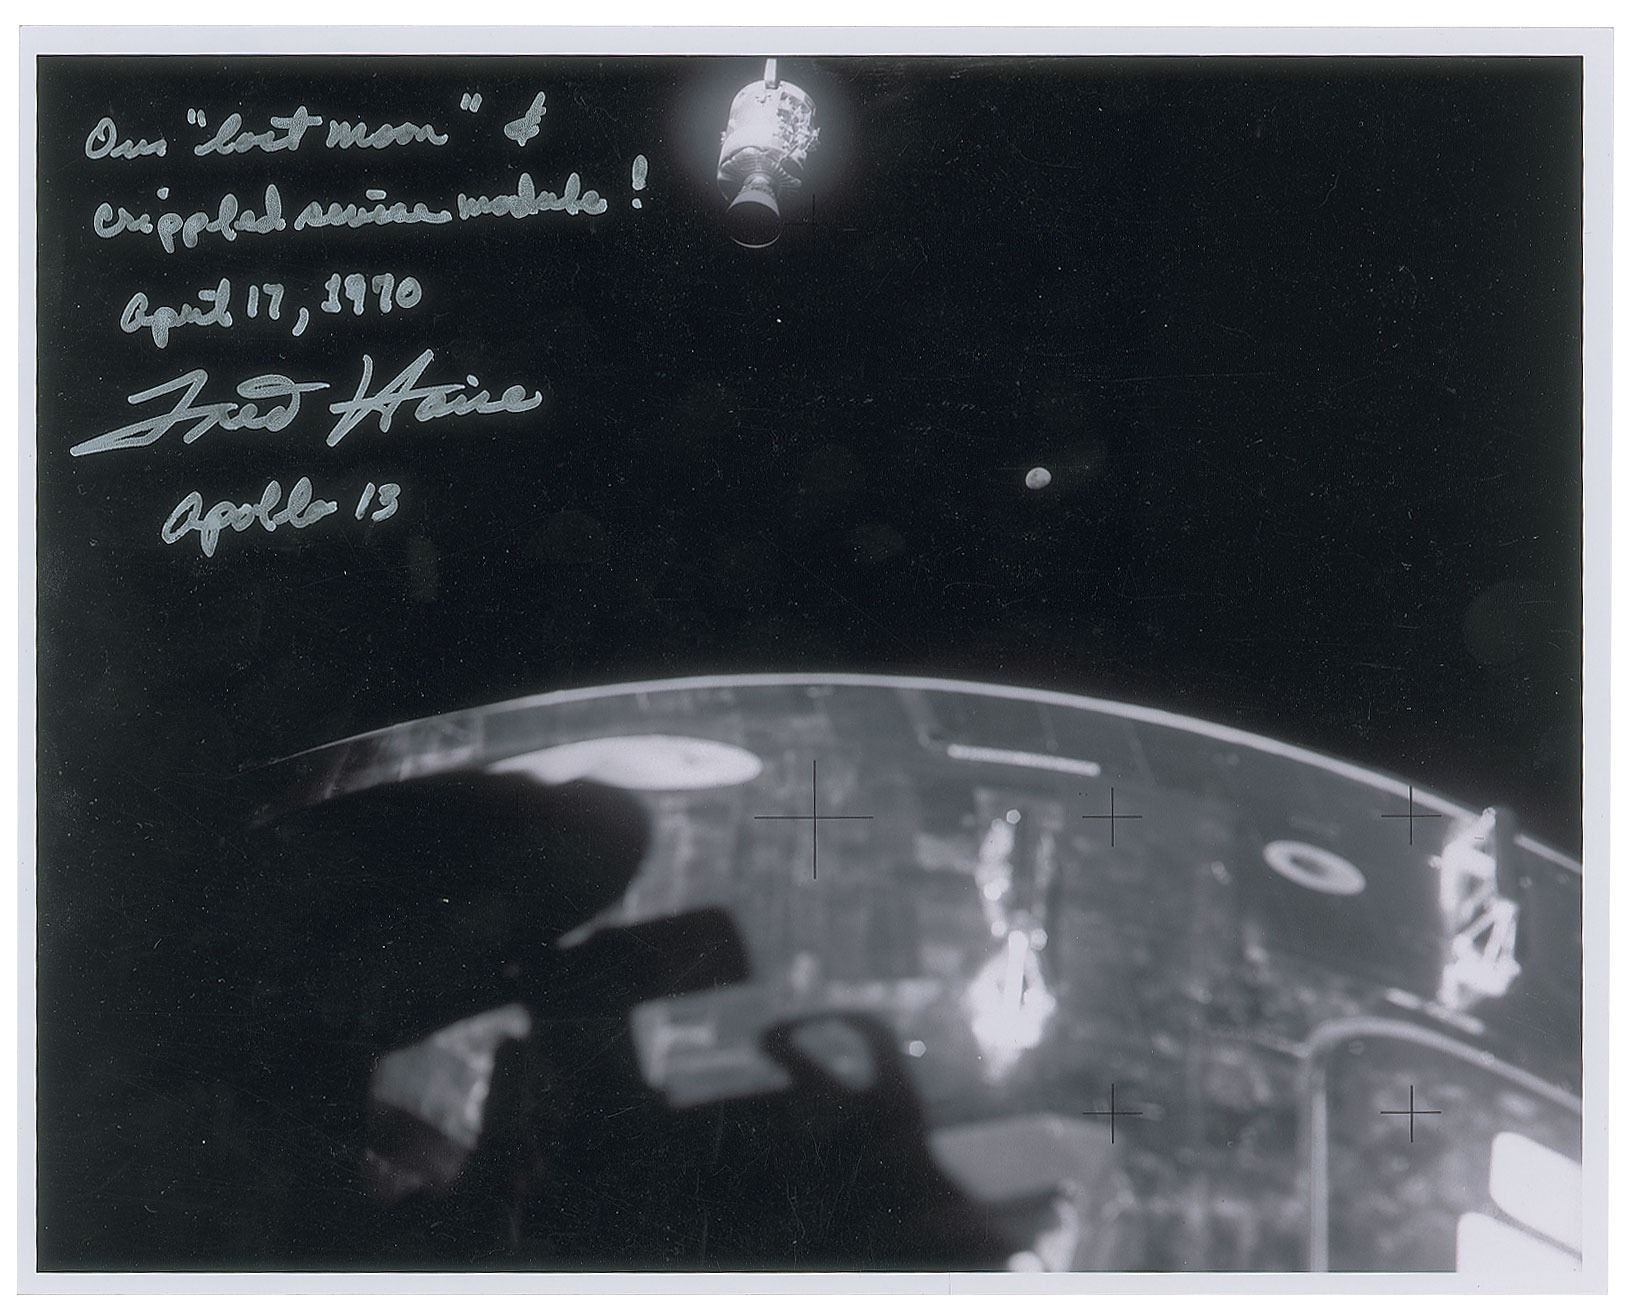 Our "lost moon" &
crippled service module!
April 17, 1970
Fred Haise
Apollo 13